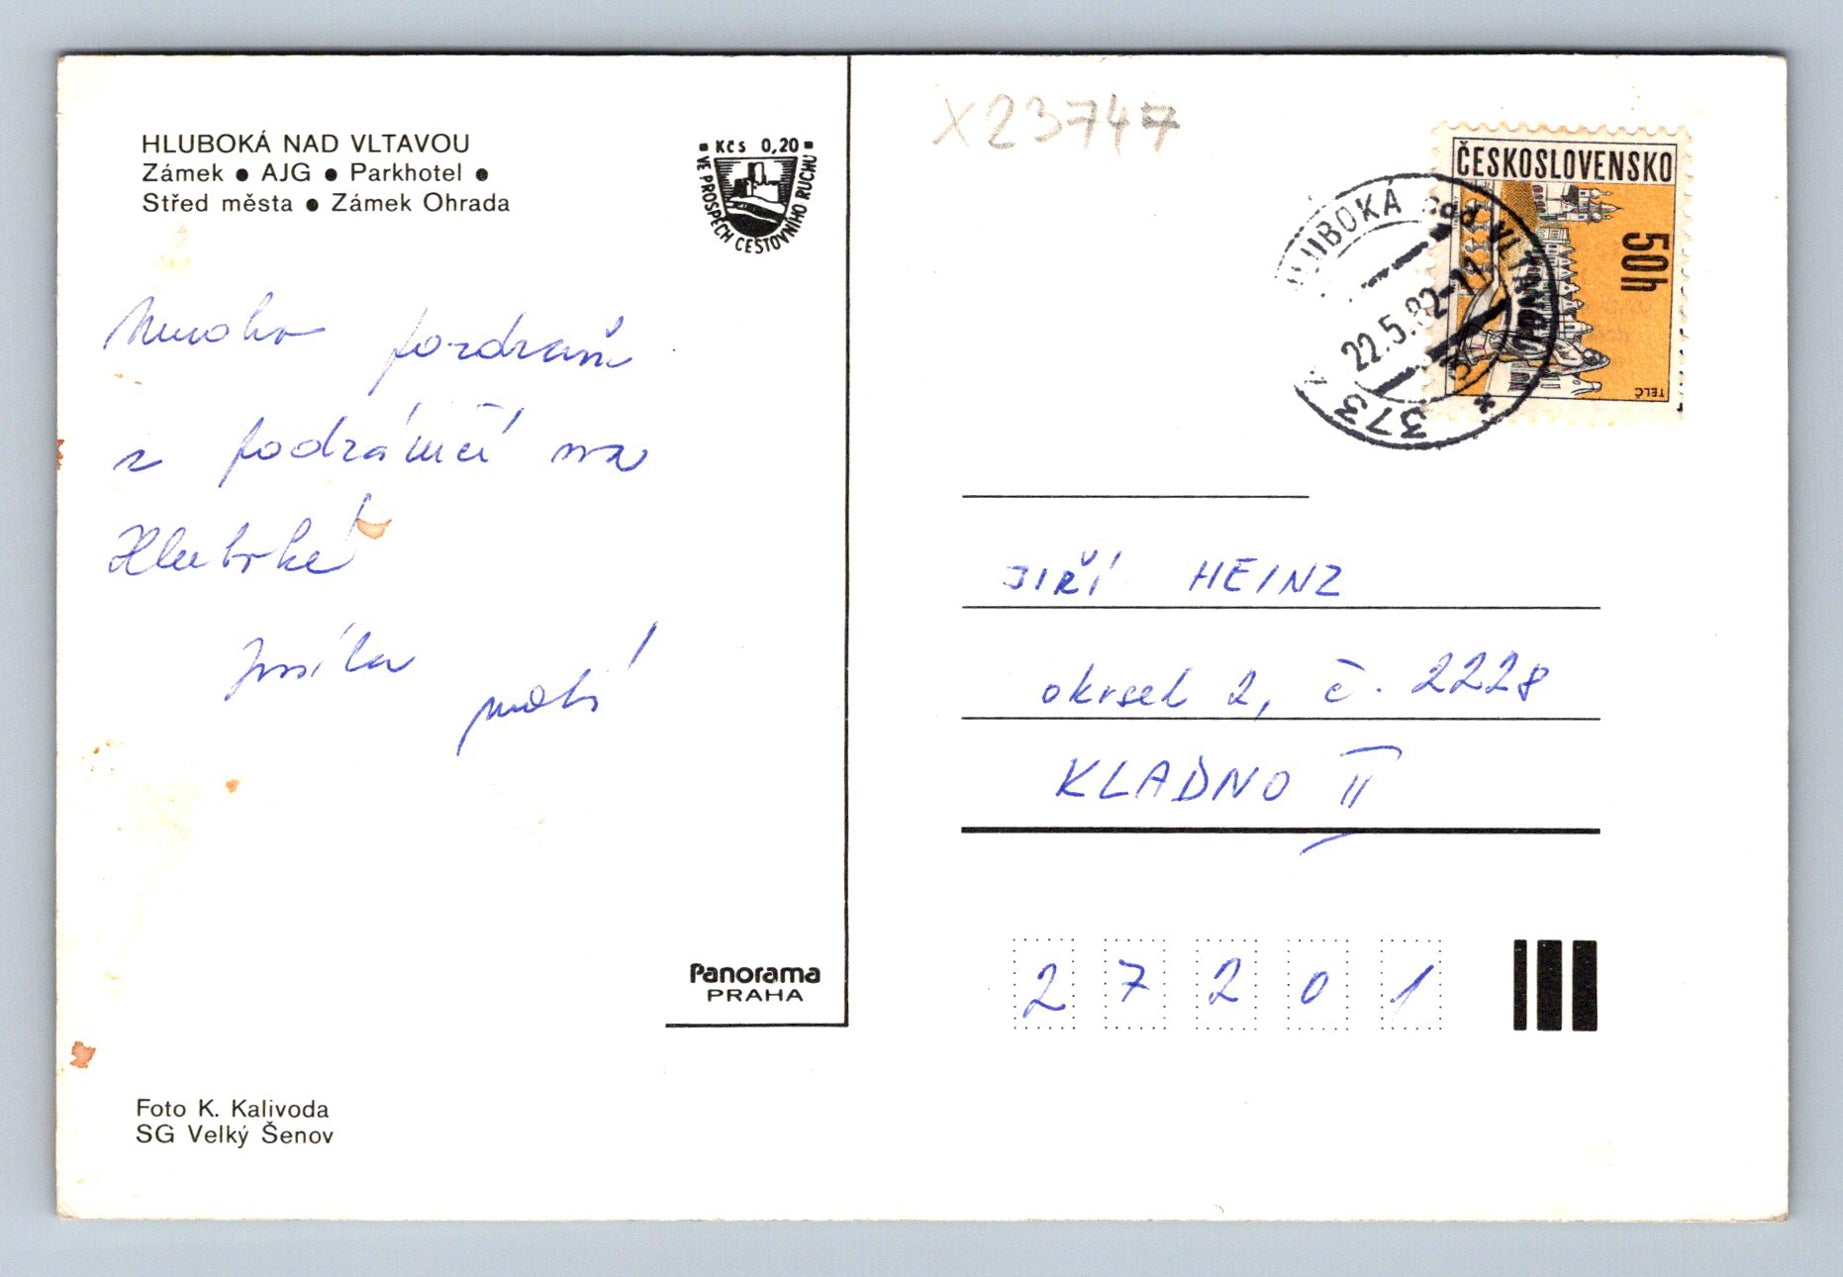 HLUBOKÁ NAD VLTAVOU
Zámek ● AJG ● Parkhotel ●
Střed města ● Zámek Ohrada
Kčs 0,20
VE PROSPĚCH CESTOVNÍHO RUCHU
Mnoho pozdravů
z podzámčí na
Hluboké
posílá
X23747
ČESKOSLOVENSKO
50h
TELČ
HLUBOKÁ nad VLTAVOU
22.5.82-11
373
JIŘÍ HEINZ
okrsek 2, č. 2228
KLADNO II
27201
Panorama
PRAHA
Foto K. Kalivoda
SG Velký Šenov